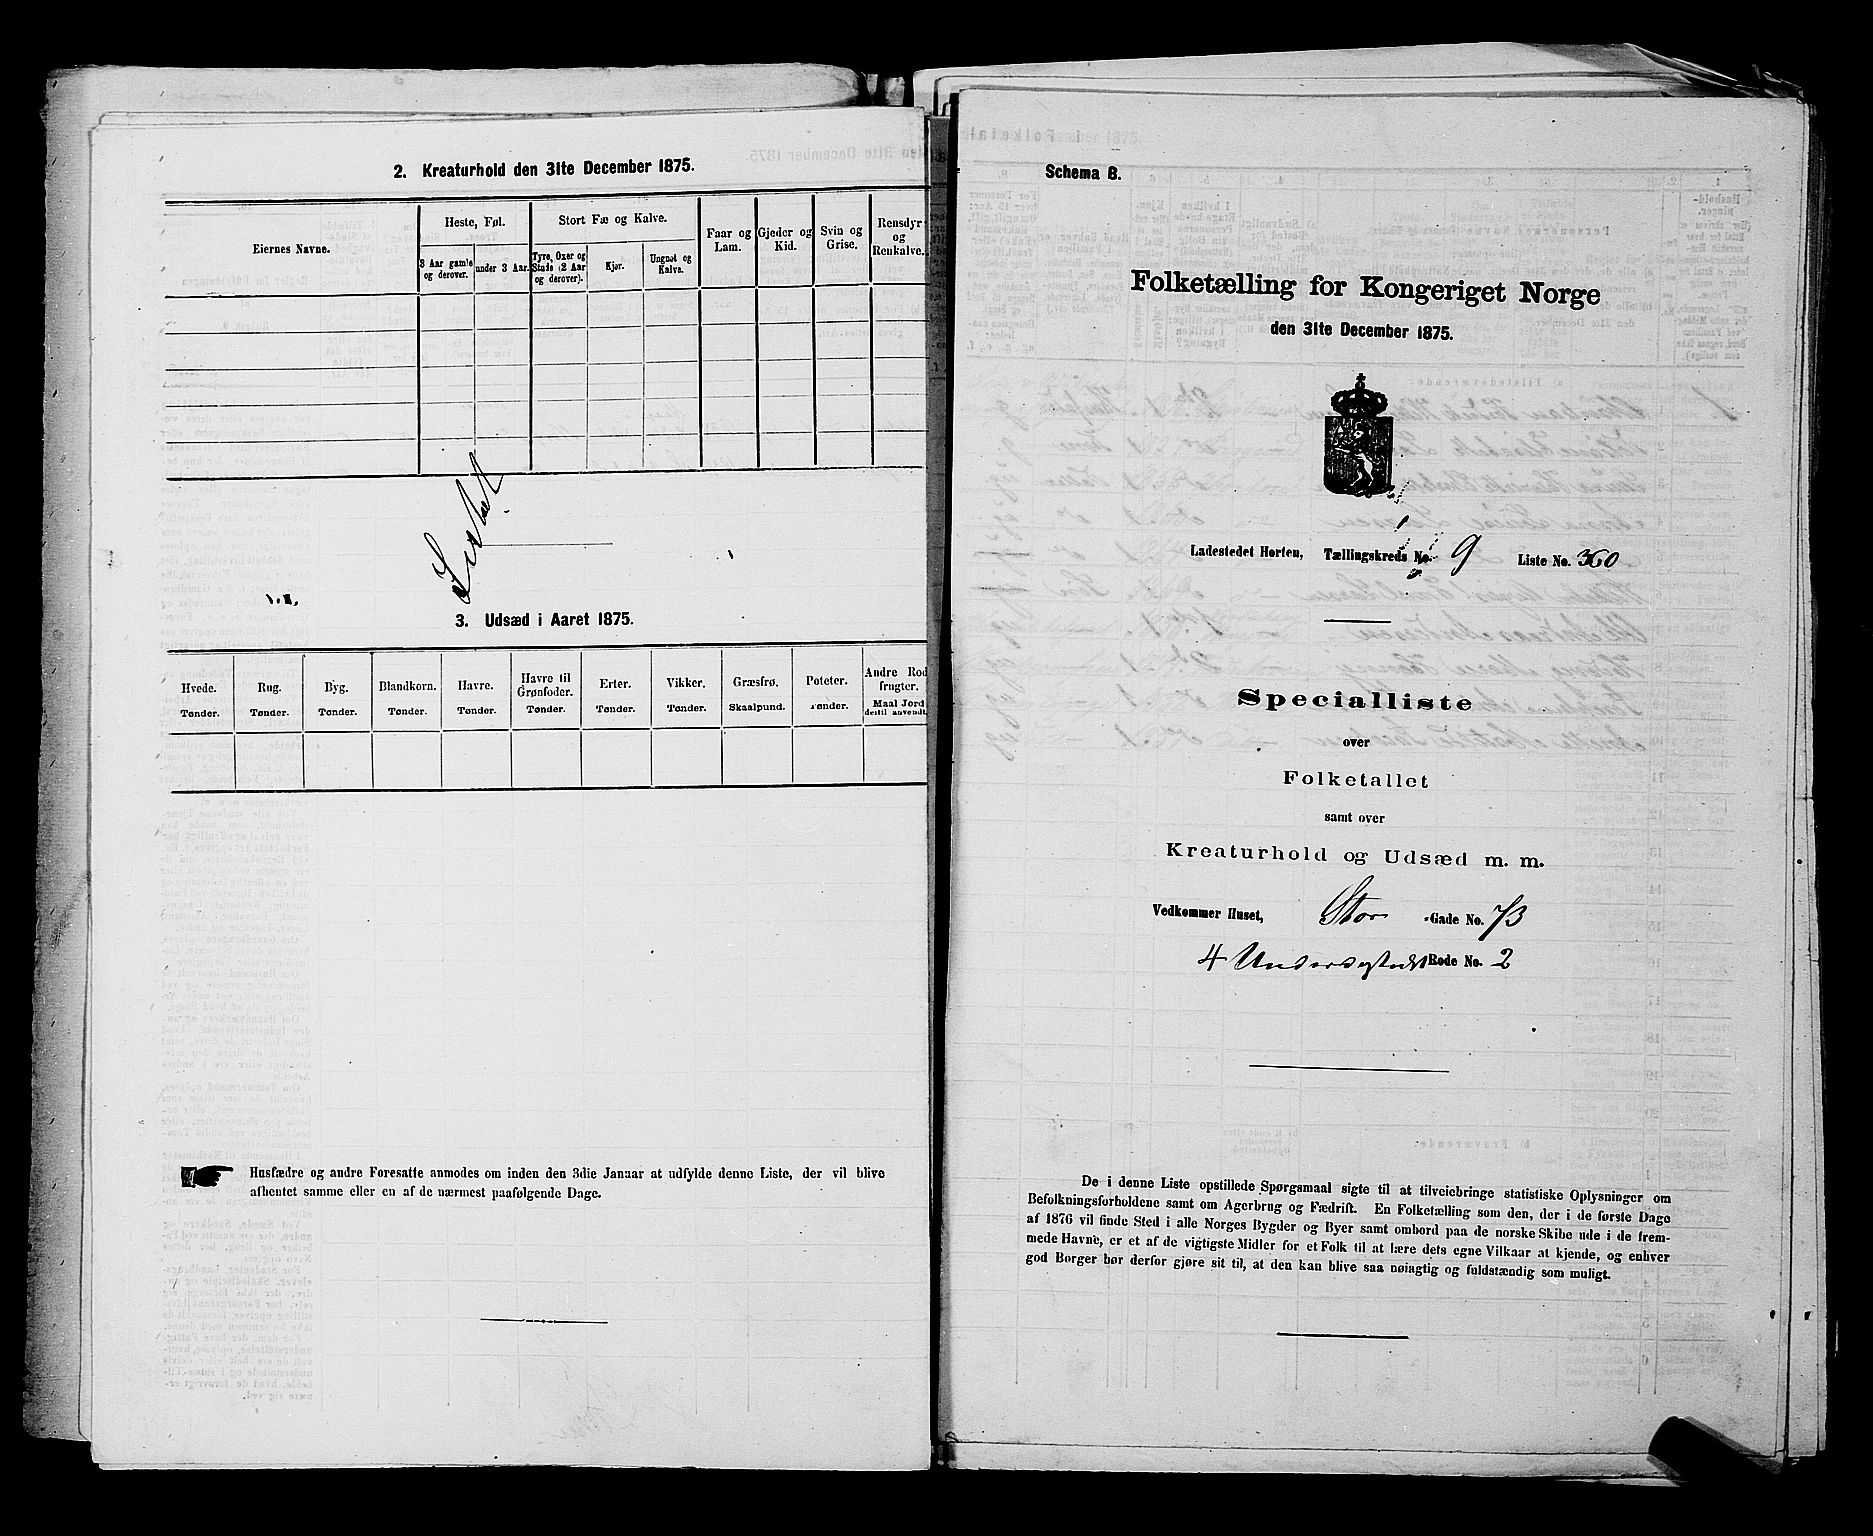 2. Kreaturhold den 31te December 1875.
Eiernes Navne.
Heste, Føl.
Stort Fæ og Kalve.
Faar og Lam.
Gjeder og Kid.
Svin og Grise.
Rensdyr og Renkalve.
3 Aar gamle og derover.
under 3 Aar.
Tyre, Oxer og Stude (2 Aar og derover).
Kjør.
Ungnøt og Kalve.
3. Udsæd i Aaret 1875.
Hvede. Rug. Byg. Blandkorn. Havre. Havre til Grønfoder. Erter. Vikker. Græsfrø. Poteter. Andre Rodfrugter.
Tønder. Tønder. Tønder. Tønder. Tønder. Tønder. Tønder. Tønder. Skaalpund. Tønder. Maal Jord dertil anvendt.
Husfædre og andre Foresatte anmodes om inden den 3die Januar at udfylde denne Liste, der vil blive
afhentet samme eller en af de nærmest paafølgende Dage.
Schema B.
Folketælling for Kongeriget Norge
den 31te December 1875.
Ladestedet Horten, Tællingskreds No. 9 Liste No. 360
Specialliste
over
Folketallet
samt over
Kreaturhold og Udsæd m. m.
Vedkommer Huset, Stor -Gade No. 73
Rode No. 2
De i denne Liste opstillede Spørgsmaal sigte til at tilveiebringe statistiske Oplysninger om
Befolkningsforholdene samt om Agerbrug og Fædrift. En Folketælling som den, der i de første Dage
af 1876 vil finde Sted i alle Norges Bygder og Byer samt ombord paa de norske Skibe ude i frem-
mede Havne, er et af de vigtigste Midler for et Folk til at lære dets egne Vilkaar at kjende, og enhver
god Borger bør derfor gjøre sit til, at den kan blive saa nøiagtig og fuldstændig som muligt.